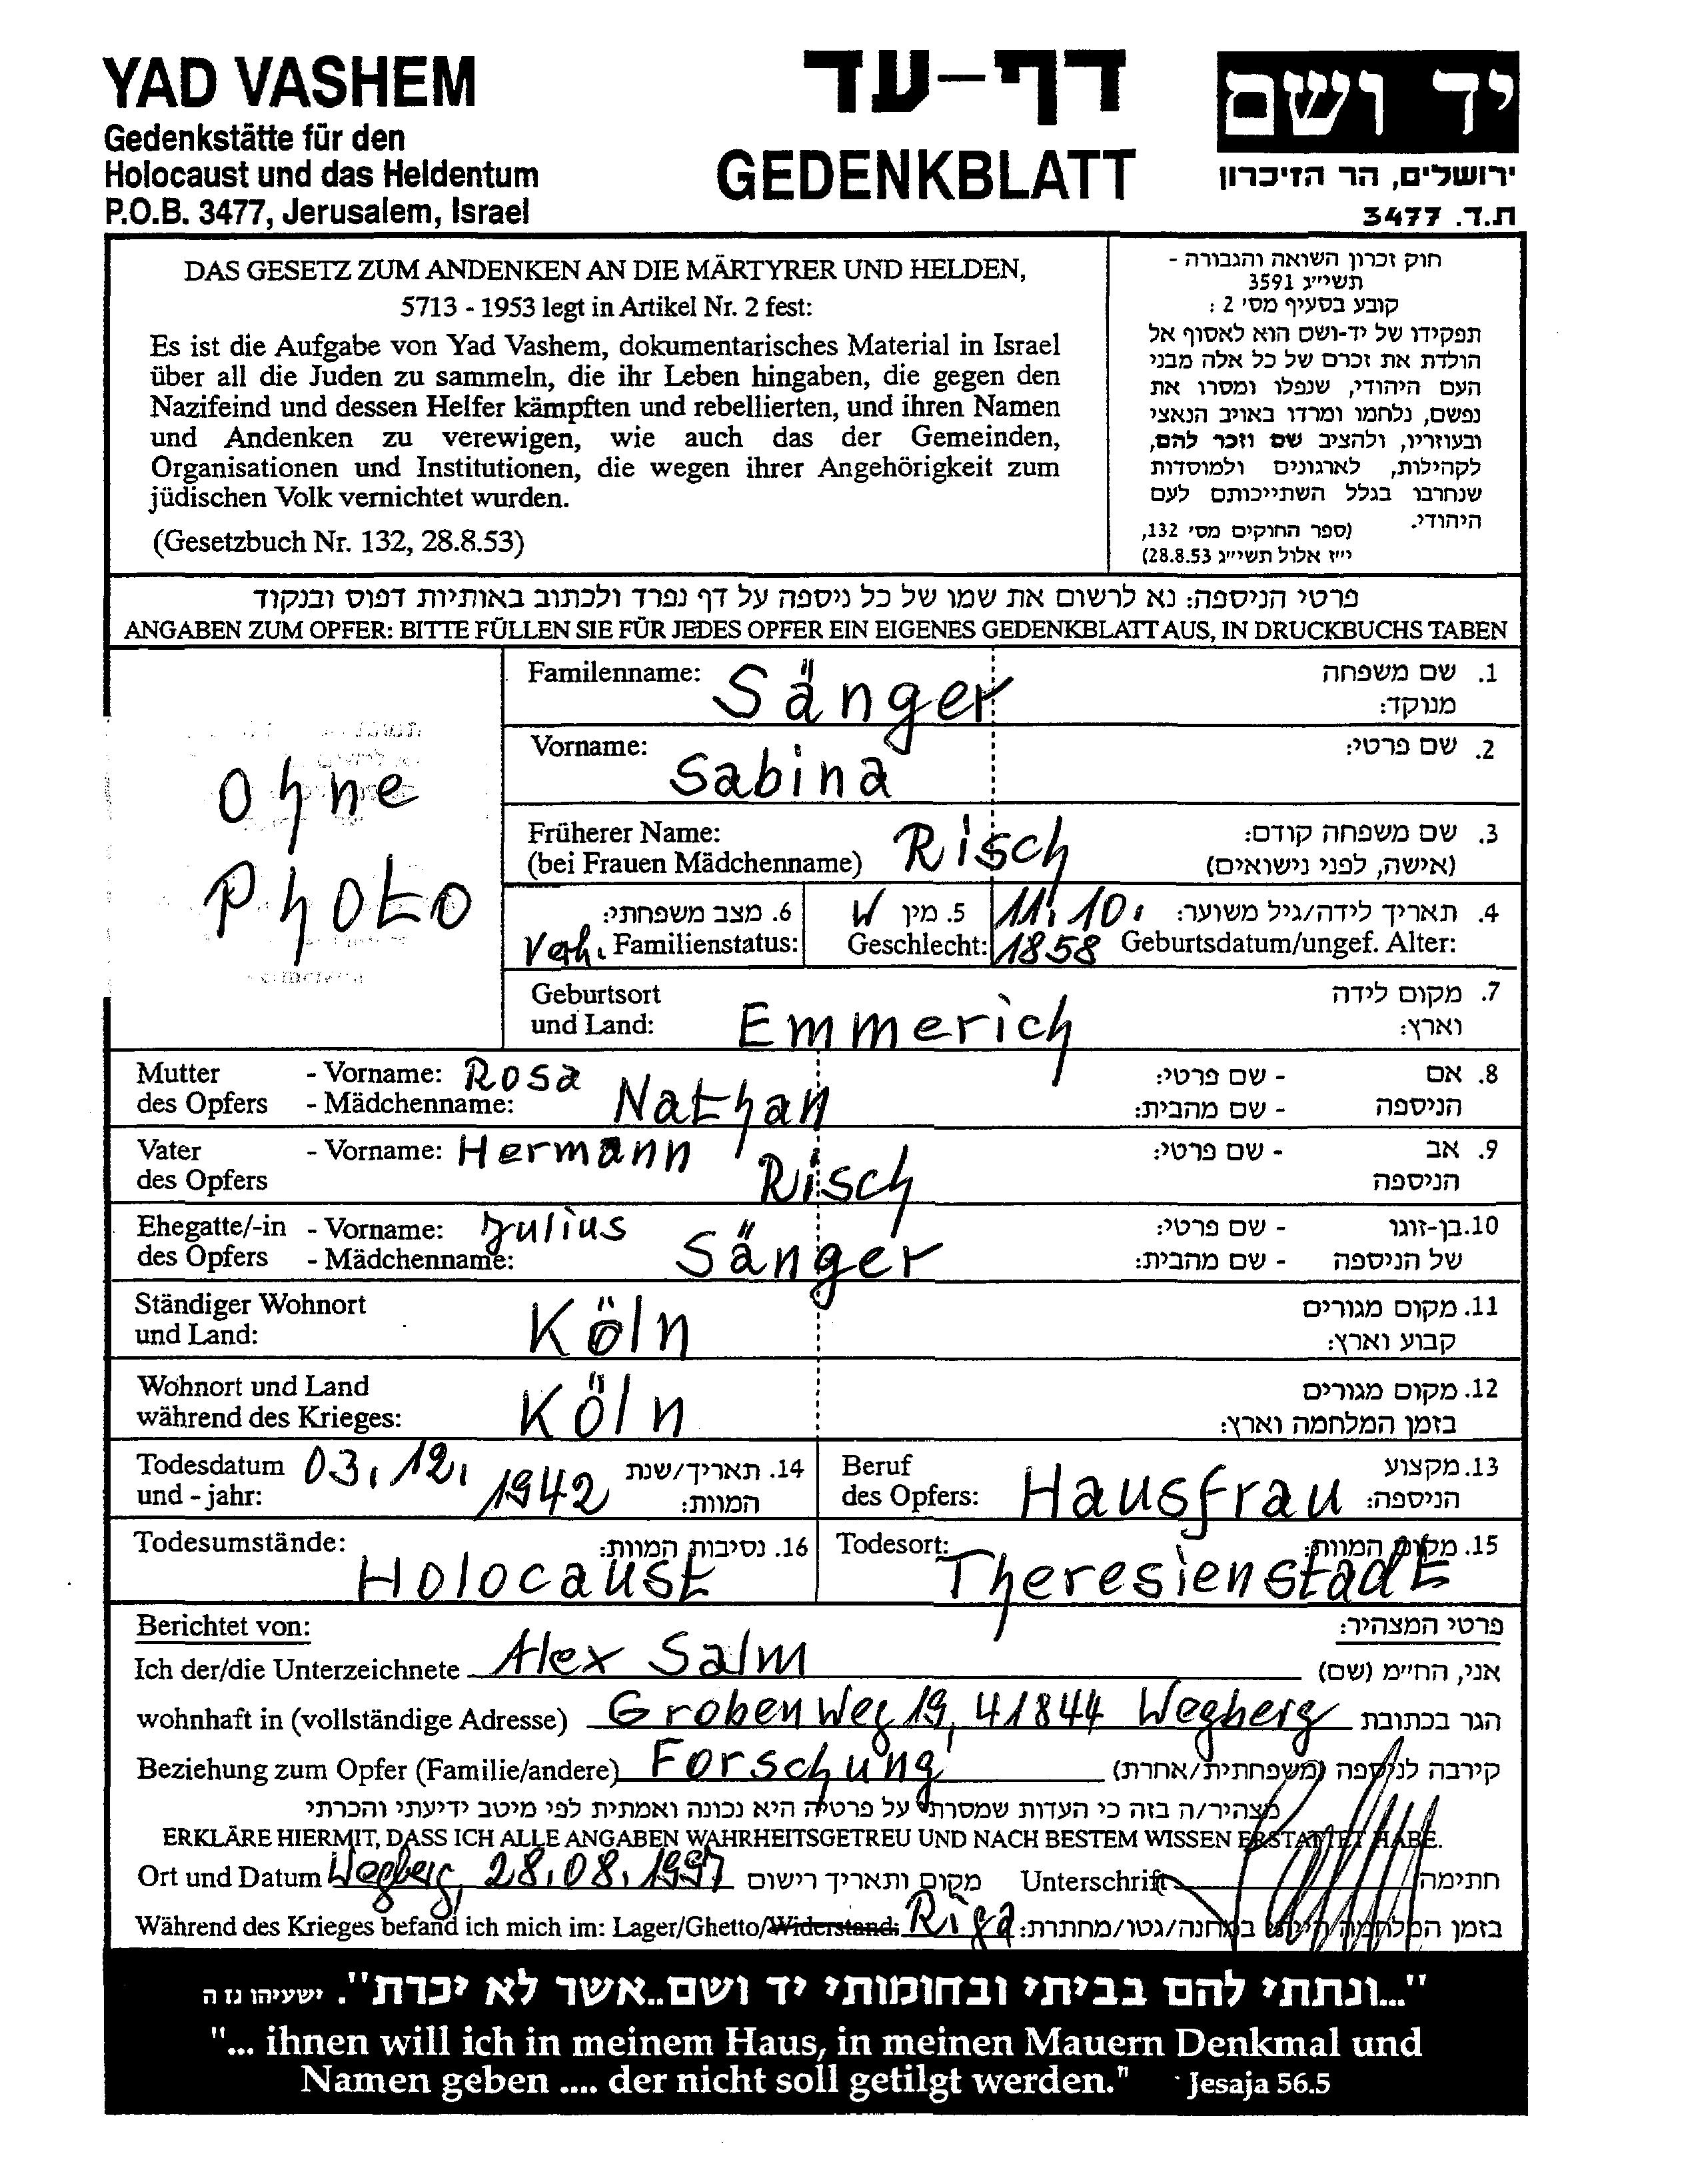 YAD VASHEM
Gedenkstätte für den
Holocaust und das Heldentum
P.O.B. 3477, Jerusalem, Israel
דף-עד
GEDENKBLATT
יד ושם
ירושלים, הר הזיכרון
ת.ד. 3477
DAS GESETZ ZUM ANDENKEN AN DIE MÄRTYRER UND HELDEN,
5713 - 1953 legt in Artikel Nr. 2 fest:
Es ist die Aufgabe von Yad Vashem, dokumentarisches Material in Israel
über all die Juden zu sammeln, die ihr Leben hingaben, die gegen den
Nazifeind und dessen Helfer kämpften und rebellierten, und ihren Namen
und Andenken zu verewigen, wie auch das der Gemeinden,
Organisationen und Institutionen, die wegen ihrer Angehörigkeit zum
jüdischen Volk vernichtet wurden.
(Gesetzbuch Nr. 132, 28.8.53)
חוק זכרון השואה והגבורה -
תשי״ג 3591
קובע בסעיף מס׳ 2 :
תפקידו של יד-ושם הוא לאסוף אל
הולדת את זכרם של כל אלה מבני
העם היהודי, שנפלו ומסרו את
נפשם, נלחמו ומרדו באויב הנאצי
ובעוזריו, ולהציב שם וזכר להם,
לקהילות, לארגונים ולמוסדות
שנחרבו בגלל השתייכותם לעם
היהודי.
(ספר החוקים מס׳ 132,
י״ז אלול תשי״ג 28.8.53)
פרטי הניספה: נא לרשום את שמו של כל ניספה על דף נפרד ולכתוב באותיות דפוס ובנקוד
ANGABEN ZUM OPFER: BITTE FÜLLEN SIE FÜR JEDES OPFER EIN EIGENES GEDENKBLATT AUS, IN DRUCKBUCHS TABEN
Ohne
Photo
Familenname: Sänger 1. שם משפחה
מנוקד:
Vorname: Sabina 2. שם פרטי:
Früherer Name: Risch 3. שם משפחה קודם:
(bei Frauen Mädchenname) (אישה, לפני נישואים)
6. מצב משפחתי: 5. מין W 11.10. 4. תאריך לידה/גיל משוער:
Verh. Familienstatus: Geschlecht: 1858 Geburtsdatum/ungef. Alter:
Geburtsort 7. מקום לידה
und Land: Emmerich וארץ:
Mutter - Vorname: Rosa - שם פרטי: 8. אם
des Opfers - Mädchenname: Nathan - שם מהבית: הניספה
Vater - Vorname: Hermann - שם פרטי: 9. אב
des Opfers Risch הניספה
Ehegatte/-in - Vorname: Julius - שם פרטי: 10.בן-זוגו
des Opfers - Mädchenname: Sänger - שם מהבית: של הניספה
Ständiger Wohnort 11. מקום מגורים
und Land: Köln קבוע וארץ:
Wohnort und Land 12. מקום מגורים
während des Krieges: Köln בזמן המלחמה וארץ:
Todesdatum 03.12. 14. תאריך/שנת Beruf 13.מקצוע
und - jahr: 1942 המוות: des Opfers: Hausfrau הניספה:
Todesumstände: 16. נסיבות המוות: Todesort: 15.מקום המוות:
Holocaust Theresienstadt
Berichtet von: פרטי המצהיר:
Ich der/die Unterzeichnete Alex Salm אני, החי״מ (שם)
wohnhaft in (vollständige Adresse) Grobenweg 19, 41844 Wegberg הגר בכתובת
Beziehung zum Opfer (Familie/andere) Forschung קירבה לניספה (משפחתית/אחרת)
מצהיר/ה בזה כי העדות שמסרתי על פרטיה היא נכונה ואמתית לפי מיטב ידיעתי והכרתי
ERKLÄRE HIERMIT, DASS ICH ALLE ANGABEN WAHRHEITSGETREU UND NACH BESTEM WISSEN ERSTATTET HABE.
Ort und Datum Wegberg, 28.08.1997 מקום ותאריך רישום Unterschrift חתימה
Während des Krieges befand ich mich im: Lager/Ghetto/Widerstand: Riga בזמן המלחמה הייתי במחנה/גטו/מחתרת:
"...ונתתי להם בביתי ובחומותי יד ושם..אשר לא יכרת". ישעיהו נז ה
"... ihnen will ich in meinem Haus, in meinen Mauern Denkmal und
Namen geben .... der nicht soll getilgt werden." Jesaja 56.5